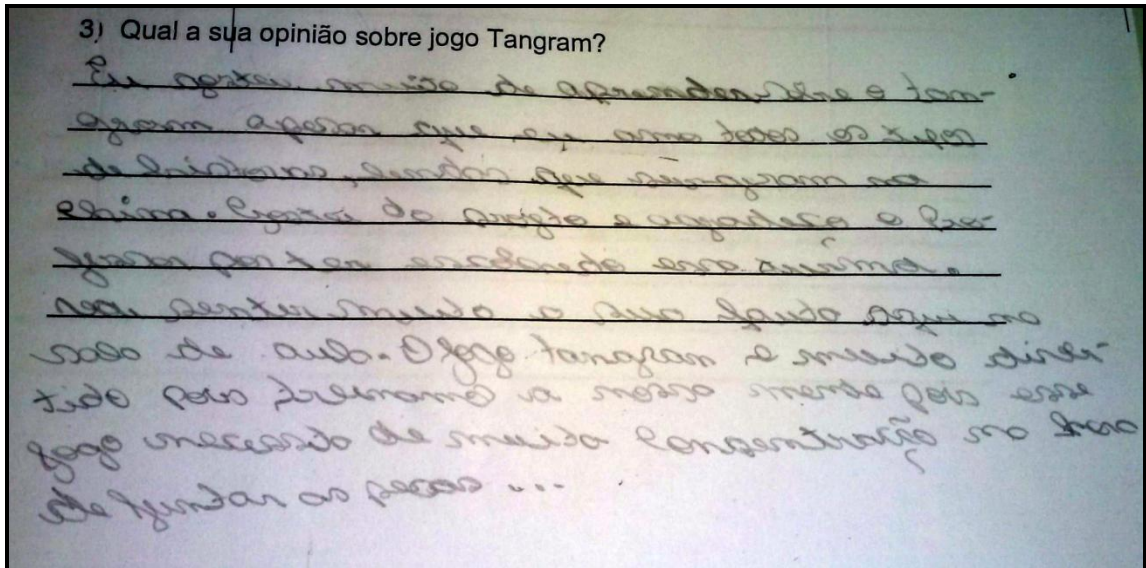 3) Qual a sua opinião sobre jogo Tangram?
Eu gostei muito de aprender sobre o tan-
gram apesar que eu amo todos os tipos
de historias, lendas que surgiram na
China. Gostei do projeto e agradeço o Pro-
fessor por ter escolhido essa turma.
vou sentir muito a sua falta aqui na
sala de aula. O jogo tangran é muito diver-
tido pois treinamo a nossa mente pois esse
jogo necessita de muita Consentração na hora
de juntar as peças ...